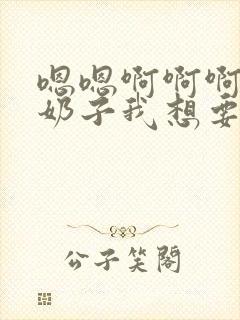 嗯嗯啊啊啊
奶子我想要
公子笑阁